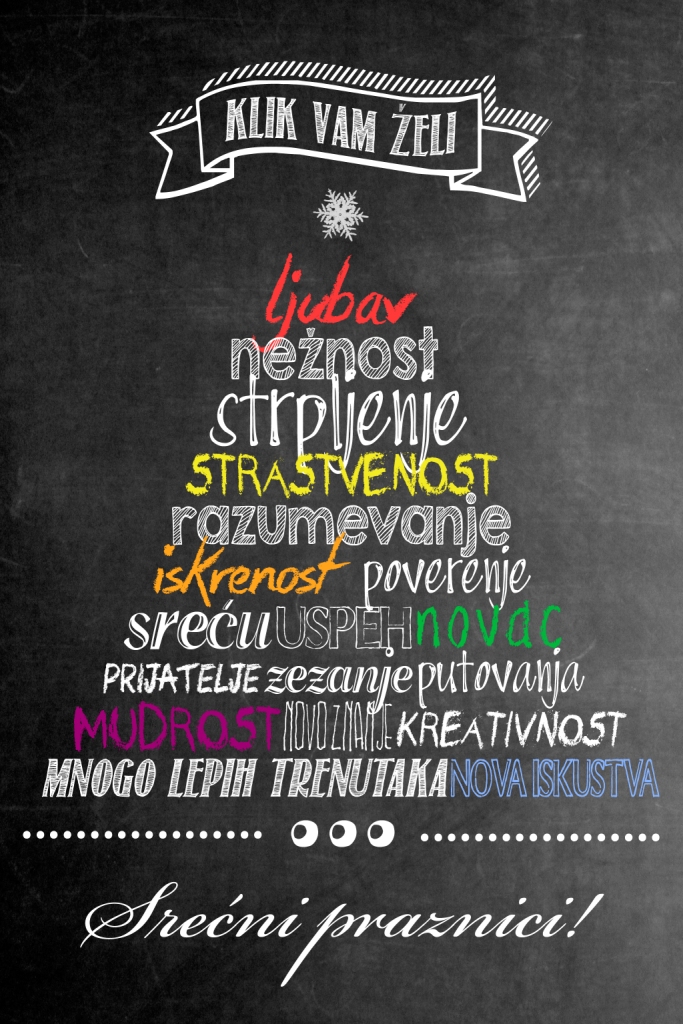 KLIK VAM ŽELI
ljubav
nežnost
strpljenje
STRASTVENOST
razumevanje
iskrenost poverenje
sreću USPEH novac
PRIJATELJE zezanje putovanja
MUDROST NOVO ZNANJE KREATIVNOST
MNOGO LEPIH TRENUTAKA NOVA ISKUSTVA
Srećni praznici!